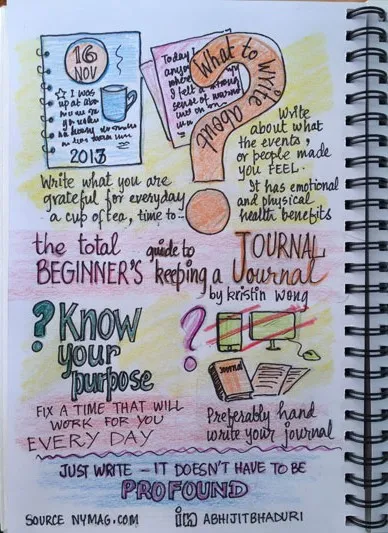 16
NOV
I was
up at
2013
Today
any
where
I felt a strong
sense of
What to write about
Write
about what
the events,
or people made
you FEEL.
It has emotional
and physical
health benefits
Write what you are
grateful for everyday
a cup of tea, time to...
the total
BEGINNER'S
guide to
keeping a
JOURNAL
Journal
by kristin wong
? Know
your
purpose
FIX A TIME THAT WILL
WORK FOR YOU
EVERY DAY
?
JOURNAL
Preferably hand
write your journal
JUST WRITE – IT DOESN'T HAVE TO BE
PROFOUND
SOURCE NYMAG.COM
in ABHIJITBHADURI